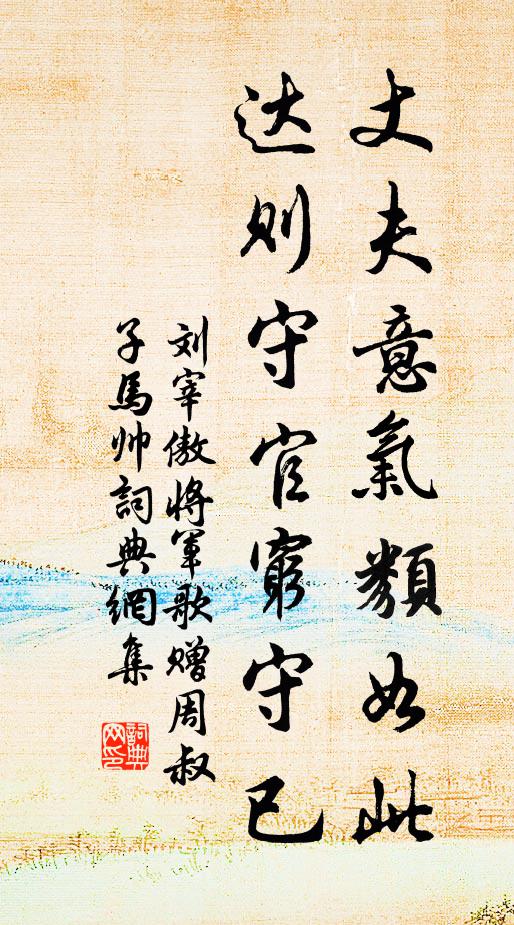 丈夫意氣類如此
达則守官窮守己
刘宰傲將軍歌赠周叔
子馬帅詞典網集
詞典
网印